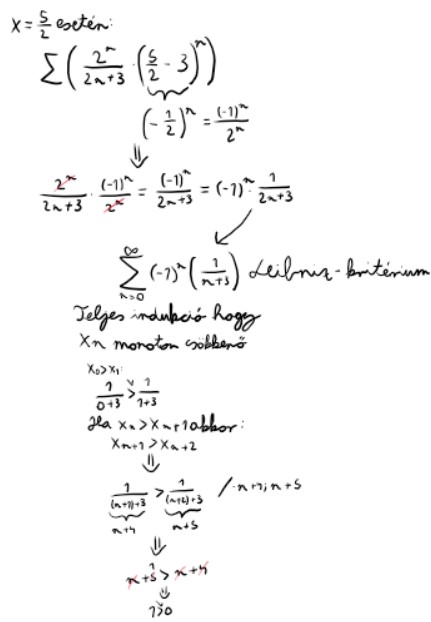 x = 5/2 esetén:
∑ ( 2^n / (2n+3) · (5/2 − 3)^n )
(−1/2)^n = (−1)^n / 2^n
⇓
2^n / (2n+3) · (−1)^n / 2^n = (−1)^n / (2n+3) = (−1)^n · 1 / (2n+3)
∑_{n=0}^{∞} (−1)^n (1 / (n+3)) Leibniz-kritérium
Teljes indukció hogy
Xn monoton csökkenő
X₀>X₁:
1 / (0+3) > 1 / (1+3)
Ha Xn > Xn+1 akkor:
Xn+1 > Xn+2
⇓
1 / ((n+1)+3) > 1 / ((n+2)+3) / · n+4; n+5
n+4 n+5
⇓
n+5 > n+4
1
⇓
1>0